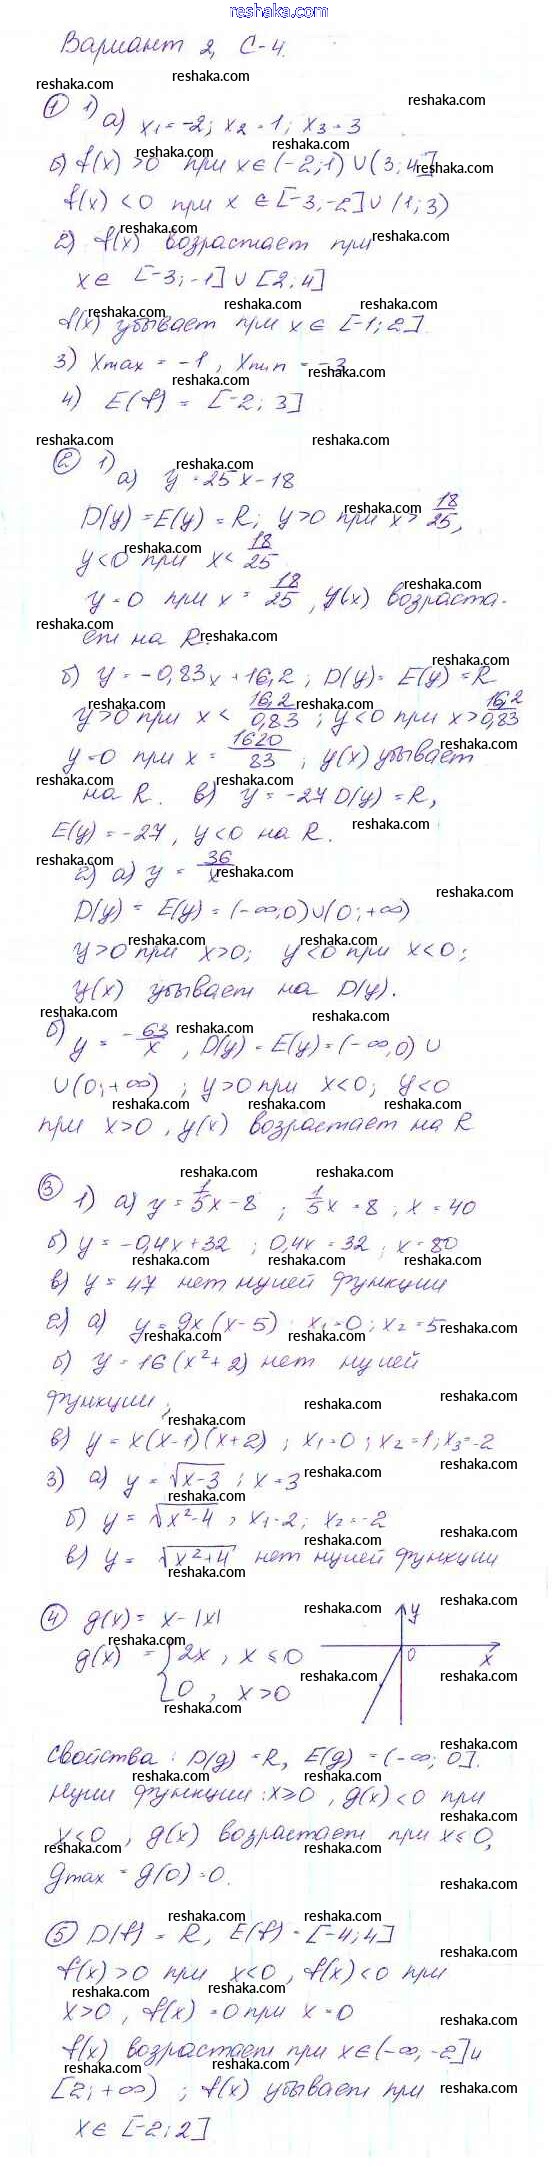 www.reshaka.com
Вариант 2, С-4.
① 1) а) x₁=-2; x₂=1; x₃=3
б) f(x)>0 при x∈(-2;1)∪(3;4]
f(x)<0 при x∈[-3,-2]∪(1;3)
2) f(x) возрастает при
x∈ [-3;-1]∪[2,4]
f(x) убывает при x∈[-1;2]
3) Xmax = -1, Xmin = -3
4) E(f) = [-2; 3]
② 1) а) y=25x-18
D(y)=E(y)=R; y>0 при x>18/25,
y<0 при x<18/25
y=0 при x=18/25, y(x) возраста-
ет на R.
б) y=-0,83x+16,2; D(y)=E(y)=R
y>0 при x<16,2/0,83; y<0 при x>16,2/0,83
y=0 при x=1620/83; y(x) убывает
на R. в) y=-27 D(y)=R,
E(y)=-27, y<0 на R.
2) а) y=36/x
D(y)=E(y)=(-∞,0)∪(0;+∞)
y>0 при x>0; y<0 при x<0;
y(x) убывает на D(y).
б) y=-63/x, D(y)=E(y)=(-∞,0)∪
∪(0;+∞); y>0 при x<0; y<0
при x>0, y(x) возрастает на R
③ 1) а) y=1/5x-8; 1/5x=8; x=40
б) y=-0,4x+32; 0,4x=32; x=80
в) y=47 нет нулей функции
2) а) y=9x(x-5) x₁=0; x₂=5
б) y=16(x²+2) нет нулей
функции;
в) y=x(x-1)(x+2); x₁=0; x₂=1; x₃=-2
3) а) y=√x-3; x=3
б) y=√x²-4, x₁=2; x₂=-2
в) y=√x²+4 нет нулей функции
④ g(x)= x-|x|
y
g(x) = {2x, x≤0
0
x
0, x>0
Свойства: D(g)=R, E(g)=(-∞;0].
Нули функции: x≥0, g(x)<0 при
x<0, g(x) возрастает при x≤0,
gmax = g(0)=0.
⑤ D(f)=R, E(f)=[-4;4]
f(x)>0 при x<0, f(x)<0 при
x>0, f(x)=0 при x=0
f(x) возрастает при x∈(-∞,-2] и
[2;+∞); f(x) убывает при
x∈[-2;2]